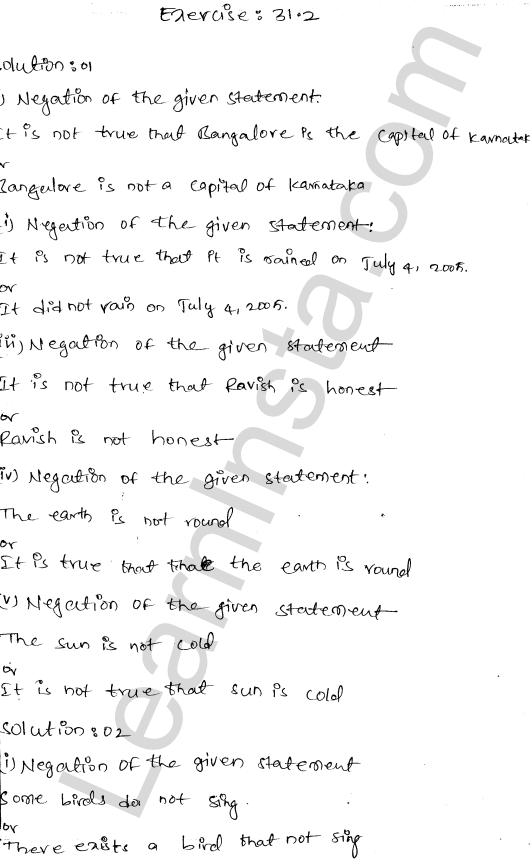 Exercise: 31.2
olution: 01
) Negation of the given statement.
It is not true that Bangalore is the capital of Karnatak
r
Bangalore is not a capital of Karnataka
i) Negation of the given statement:
It is not true that it is rained on July 4, 2005.
or
It did not rain on July 4, 2005.
iii) Negation of the given statement
It is not true that Ravish is honest
or
Ravish is not honest
iv) Negation of the given statement:
The earth is not round
or
It is true that that the earth is round
(v) Negation of the given statement
The sun is not cold
or
It is not true that sun is cold
Solution: 02
(i) Negation of the given statement
Some birds do not sing.
or
There exists a bird that not sing
LearnInsta.com